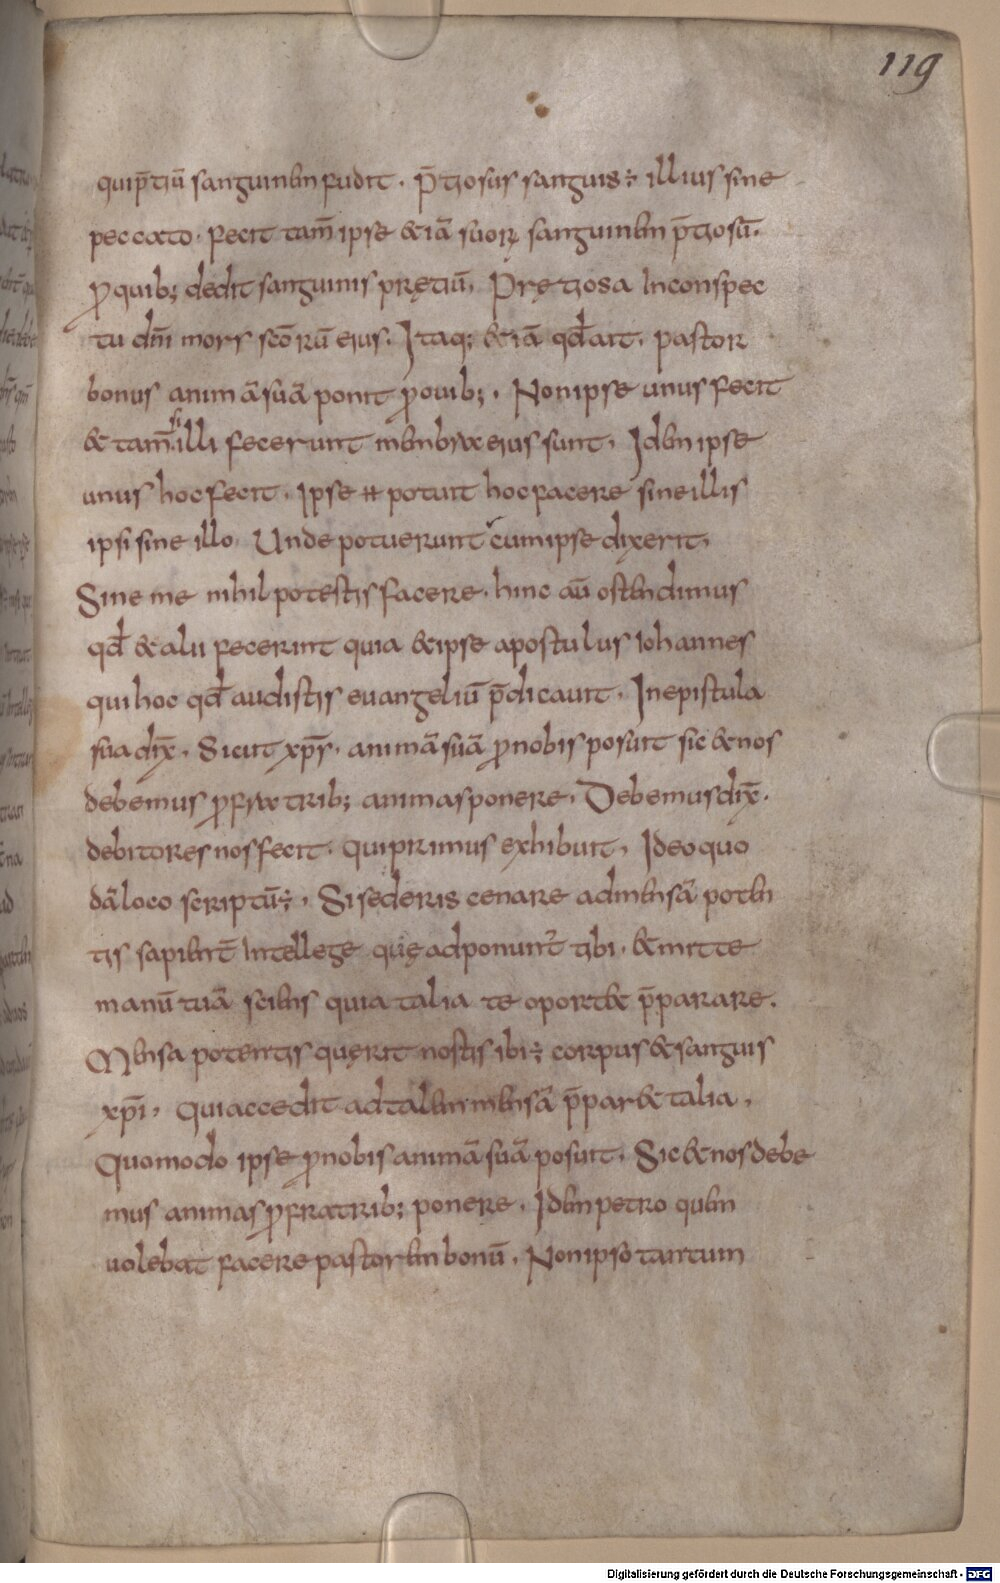 119
quip̄tiū sanguinem fudit. p̄tiosus sanguis ÷ illius sine
peccato. fecit tam̄ ipse &iā suoꝝ sanguinem p̄tiosū.
ꝓquib; dedit sanguinis prętiū. Prętiosa Inconspec
tu dn̄i mors scōrū eius. Itaq; &iā qđ ait. pastor
bonus animā suā ponit ꝓouib;. Non ipse unus fecit
& tam̄ si illi fecerunt membra eius sunt. Idem ipse
unus hoc fecit. Ipse ħ potuit hoc facere sine illis
ipsi sine illo. Unde potuerunt cum ipse dixerit.
Sine me nihil potestis facere. hinc aū ostendimus
qđ &alii fecerint quia &ipse apostulus Iohannes
qui hoc qđ audistis euangeliū p̄dicauit. In epistula
sua dix̄. Sicut xp̄s. animā suā ꝓnobis posuit sic &nos
debemus ꝓfratrib; animas ponere. Debemus dix̄.
debitores nos fecit. qui primus exhibuit. Ideo quo
dā loco scriptū÷. Si sederis cenare ad mensā poten
tis sapient̄ Intellege quę adponunt̄ tibi. & mitte
manū tuā sciens quia talia te oport& p̄parare.
Mensa potentis quę rit nostis ibi ÷ corpus &sanguis
xp̄i. Qui accedit ad talem mensā p̄par& talia.
Quomodo ipse ꝓnobis animā suā posuit. Sic &nos debe
mus animas ꝓfratrib; ponere. Idem petro quem
uolebat facere pastorem bonū. Non ipso tantum
Digitalisierung gefördert durch die Deutsche Forschungsgemeinschaft - DFG